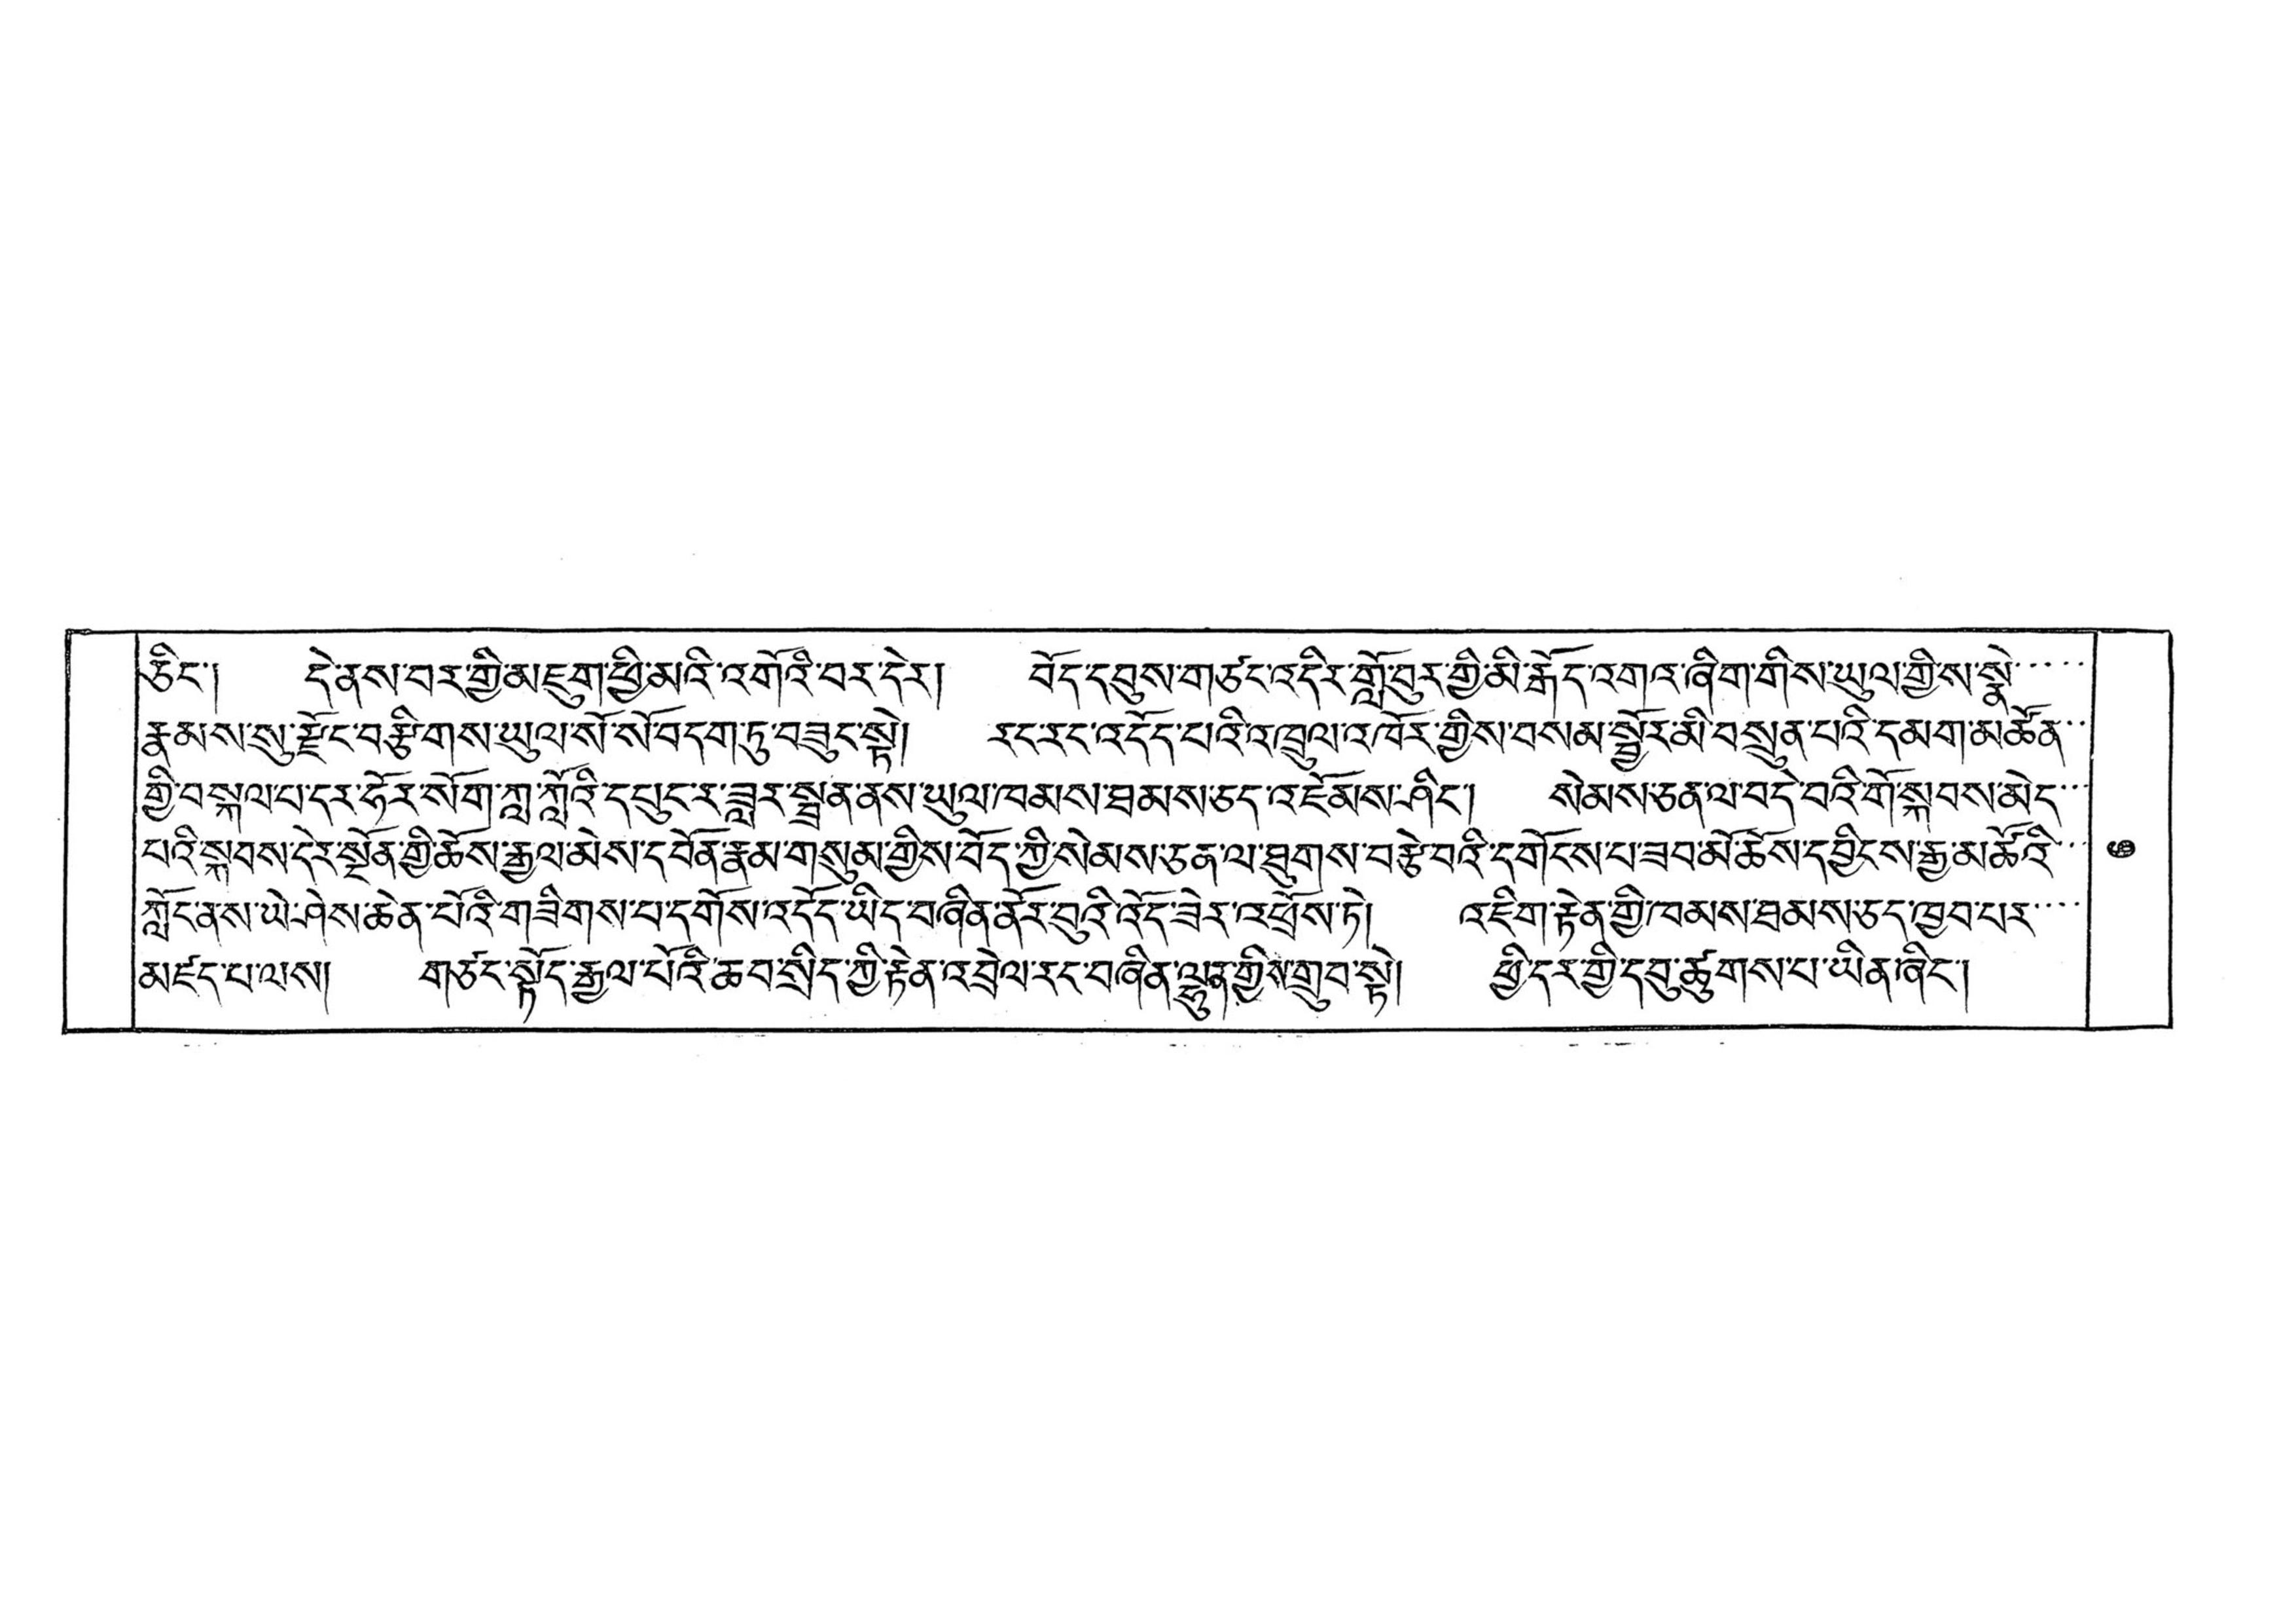 ཅིང་། དེ་ནས་བར་གྱི་མཇུག་ཕྱི་མའི་འགོའི་བར་དེར། བོད་དབུས་གཙང་འདིར་གློ་བུར་གྱི་མི་རྒོད་འགའ་ཞིག་གིས་ཡུལ་གྱིས་སྣེ་་་་་
རྣམས་སུ་རྫོང་བརྩིགས་ཡུལ་སོ་སོ་བདག་ཏུ་བཟུང་སྟེ། རང་རང་འདོད་པའི་འཁྲུལ་འཁོར་གྱིས་བསམ་སྦྱོར་མི་བསྲུན་པའི་དམག་མཚོན་་
གྱི་བསྐལ་པ་དར་ཧོར་སོག་ཀླ་ཀློའི་དཔུང་ར་ཟླར་སྦྲན་ནས་ཡུལ་ཁམས་ཐམས་ཅད་འཇོམས་ཤིང་། སེམས་ཅན་ལ་བདེ་བའི་གོ་སྐབས་མེད་་་
པའི་སྐབས་དེར་སྔོན་གྱི་ཆོས་རྒྱལ་མེས་དབོན་རྣམ་གསུམ་གྱིས་བོད་ཀྱི་སེམས་ཅན་ལ་ཐུགས་བརྩེ་བའི་དགོངས་པ་ཟབ་མོ་ཆོས་དབྱིངས་རྒྱ་མཚོའི་་་
ཀློང་ནས་ཡེ་ཤེས་ཆེན་པོའི་གཟིགས་པ་དགོས་འདོད་ཡིད་བཞིན་ནོར་བུའི་འོད་ཟེར་འཕྲོས་ཏེ། འཇིག་རྟེན་གྱི་ཁམས་ཐམས་ཅད་ཁྱབ་པར་་་་
མཛད་པ་ལས། གཙང་སྟོད་རྒྱལ་པོའི་ཆབ་སྲིད་ཀྱི་རྟེན་འབྲེལ་རང་བཞིན་ལྷུན་གྱིས་གྲུབ་སྟེ། ཕྱི་དར་གྱི་དབུ་ཚུགས་པ་ཡིན་ཞིང་།